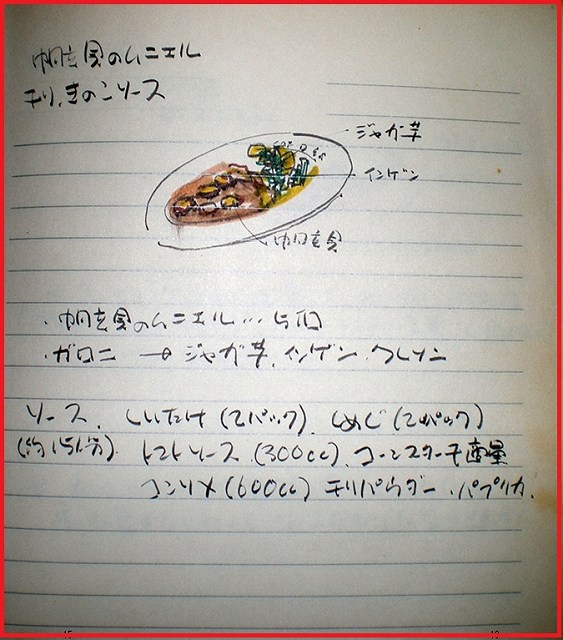 帆立貝のムニエル
チリ、きのこソース
ジャガ芋
インゲン
帆立貝
・帆立貝のムニエル…5個
・ガロニ → ジャガ芋、インゲン、クレソン
ソース、しいたけ(2パック)、しめじ(2パック)
(約15人分) トマトソース(300cc)、コーンスターチ適量
コンソメ(600cc) チリパウダー、パプリカ、